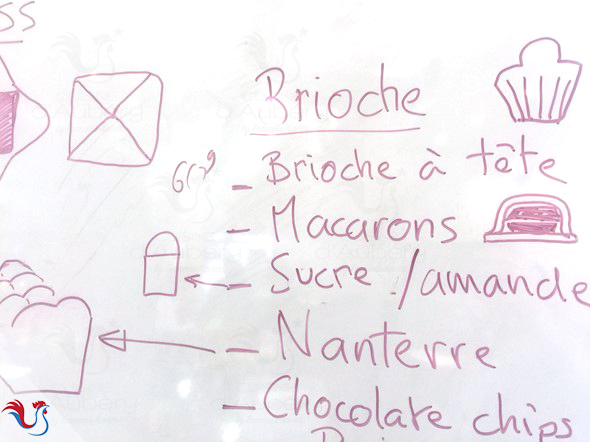 SS
Brioche
- Brioche à tête
- Macarons
- Sucre / amande
- Nanterre
- Chocolate chips